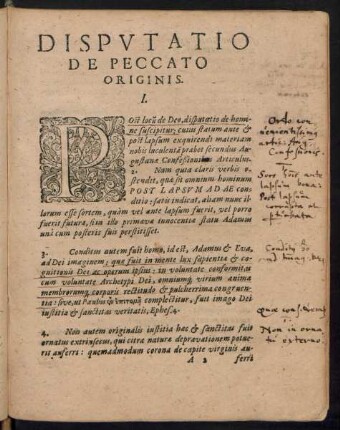 DISPVTATIO
DE PECCATO
ORIGINIS.
I.
POst locū de Deo, disputatio de homi-
ne suscipitur; cuius statum ante &
post lapsum exquirendi materiam
nobis luculentā præbet secundus Au-
gustanæ Confessionis Articulus.
2. Nam quia claris verbis o-
stendit, quæ sit omnium hominum
POST LAPSVM ADAE con-
ditio: satis indicat, aliam nunc il-
lorum esse sortem, quàm vel ante lapsum fuerit, vel porro
fuerit futura, si in illo primæuo innocentiæ statu Adamus
unà cum posteris suis perstitisset.
3. Conditus autem fuit homo, id est, Adamus & Eva,
ad Dei imaginem; quæ fuit in mente lux sapientiæ & co-
gnitionis Dei ac operum ipsius: in voluntate conformitas
cum voluntate Archetypi Dei, omnium virium animæ
membrorumq; corporis rectitudo & pulcherrima congruen-
tia: siue, ut Paulus complectitur, fuit imago Dei
iustitia & sanctitas veritatis, Ephes. 4.
4. Non autem originalis iustitia hæc & sanctitas fuit
ornatus extrinsecus, qui citra naturæ depravationem potue-
rit auferri: quemadmodum corona de capite virginis au-
A 2 ferri
Ordo con-
Aug.
Confessionis
ante
lapsum
Post lapsum
Non in orna-
tu externo.